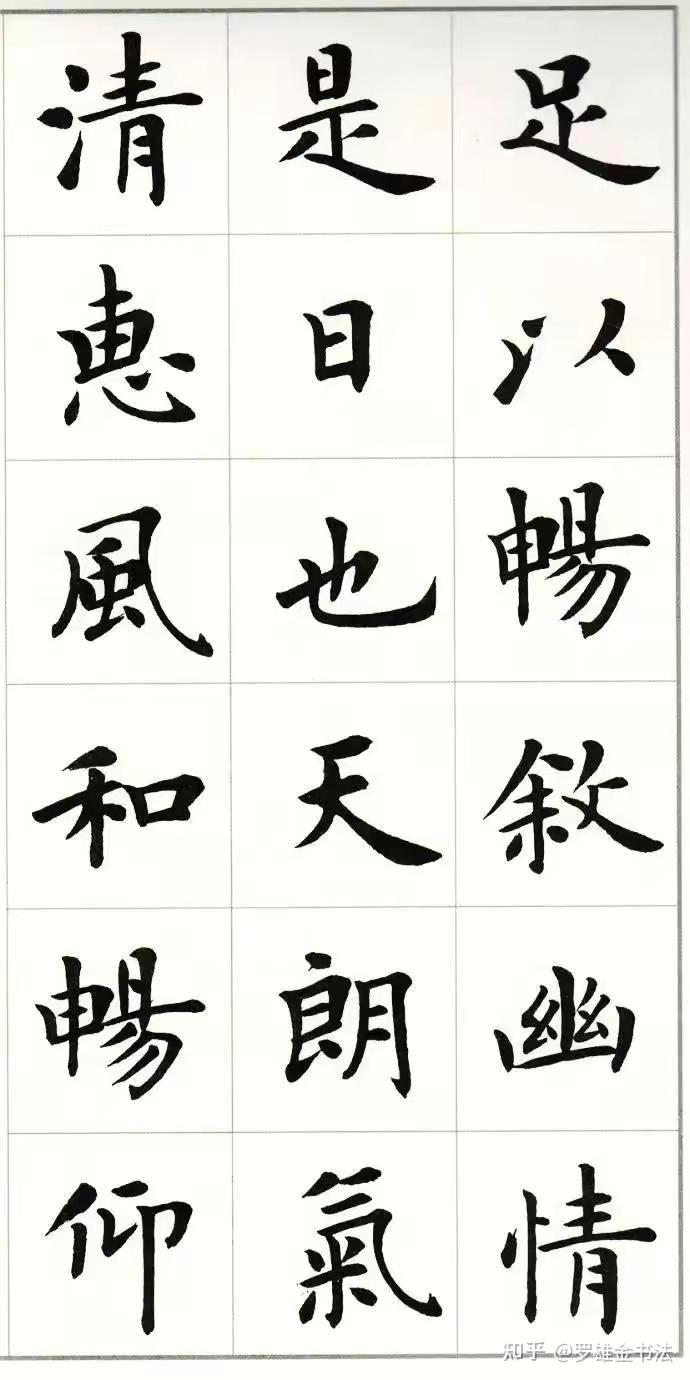 足以暢敘幽情
是日也天朗氣
清惠風和暢仰
知乎 @罗雄金书法